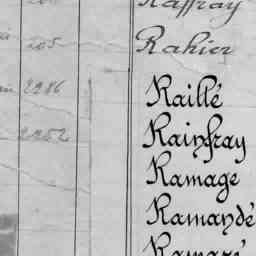 Raffray
105 Rahier
2286 Raillé
2252 Rainfray
Ramage
Ramandé
Ramaré